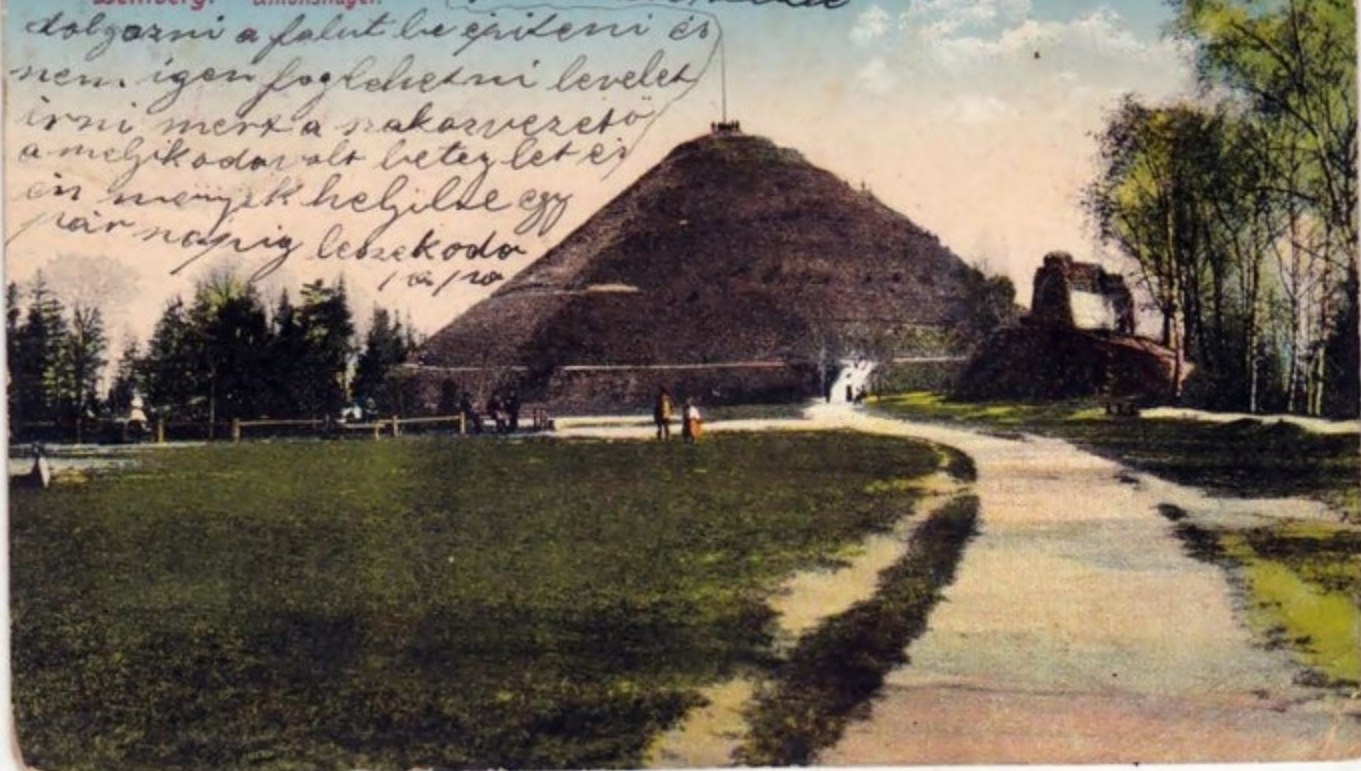 Lemberg. Unionshügel.
dolgozni a falut be épiteni és
nem igen foglehetni levelet
irni merx a szakaszvezető
a melyik oda volt beteg let és
én menyek helyibe egy
pár napig leszek oda